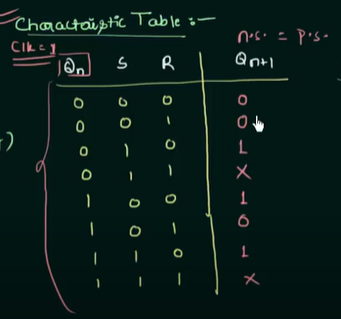 Characteristic Table :-
Clk = 1
n.s. = p.s.
Qn S R Qn+1
0 0 0 0
0 0 1 0
0 1 0 1
0 1 1 X
1 0 0 1
1 0 1 0
1 1 0 1
1 1 1 X